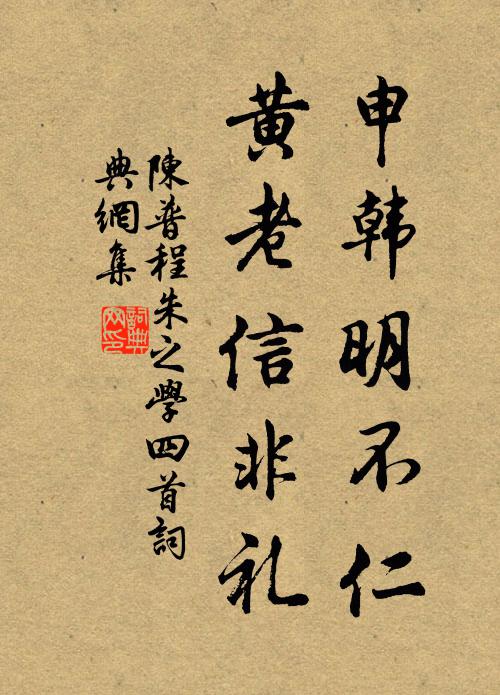 申韩明不仁
黄老信非礼
陳普程朱之學四首詞
典網集
詞典
网印